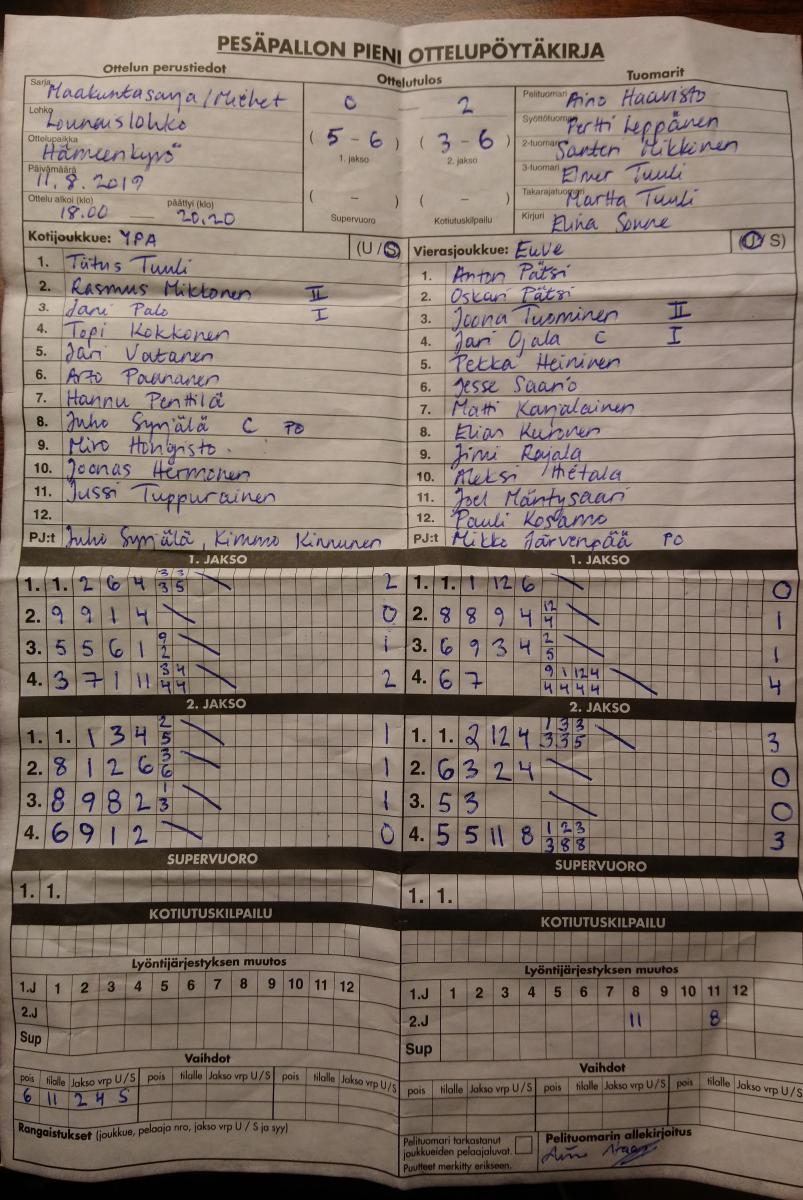 PESÄPALLON PIENI OTTELUPÖYTÄKIRJA
Ottelun perustiedot
Ottelutulos
Tuomarit
Sarja Maakuntasarja/Miehet
Lohko Lounaislohko
Ottelupaikka Hämeenkyrö
Päivämäärä 11.8.2019
Ottelu alkoi (klo) 18.00 päättyi (klo) 20.20
0 - 2
( 5 - 6 ) ( 3 - 6 )
1. jakso 2. jakso
( - ) ( - )
Supervuoro Kotiutuskilpailu
Pelituomari Aino Haavisto
Syöttötuomari Pertti Leppänen
2-tuomari Santeri Mikkonen
3-tuomari Elmer Tuuli
Takarajatuomari Martta Tuuli
Kirjuri Elina Sonne
Kotijoukkue: YPA (U / S)
1. Tiitus Tuuli
2. Rasmus Mikkonen II
3. Jani Palo I
4. Topi Kokkonen
5. Jari Vatanen
6. Arto Paananen
7. Hannu Penttilä
8. Juho Syrjälä C PO
9. Miro Hongisto
10. Joonas Hermonen
11. Jussi Tuppurainen
12.
PJ:t Juho Syrjälä, Kimmo Kinnunen
Vierasjoukkue: EuVe (U / S)
1. Anton Pätsi
2. Oskari Pätsi
3. Joona Tuominen II
4. Jari Ojala C I
5. Pekka Heininen
6. Jesse Saario
7. Matti Karjalainen
8. Elias Kuronen
9. Jimi Rajala
10. Aleksi Hietala
11. Joel Mäntysaari
12. Pauli Kosamo
PJ:t Mikko Järvenpää PO
1. JAKSO
1. 1. 2 6 4 3 3 2
3 5
2. 9 9 1 4 0
3. 5 5 6 1 9 1
2
4. 3 7 1 11 3 4 2
4 4
2. JAKSO
1. 1. 1 3 4 2 1
5
2. 8 1 2 6 3 1
6
3. 8 9 8 2 1 1
3
4. 6 9 1 2 0
SUPERVUORO
1. 1.
KOTIUTUSKILPAILU
Lyöntijärjestyksen muutos
1.J 1 2 3 4 5 6 7 8 9 10 11 12
2.J
Sup
Vaihdot
pois tilalle Jakso vrp U / S pois tilalle Jakso vrp U / S pois tilalle Jakso vrp U / S
6 11 2 4 S
Rangaistukset (joukkue, pelaaja nro, jakso vrp U / S ja syy)
1. JAKSO
1. 1. 1 12 6 0
2. 8 8 9 4 12 1
4
3. 6 9 3 4 2 1
5
4. 6 7 9 1 12 4 4
4 4 4 4
2. JAKSO
1. 1. 2 12 4 1 3 3 3
3 3 5
2. 6 3 2 4 0
3. 5 3 0
4. 5 5 11 8 1 2 3 3
3 8 8
SUPERVUORO
1. 1.
KOTIUTUSKILPAILU
Lyöntijärjestyksen muutos
1.J 1 2 3 4 5 6 7 8 9 10 11 12
2.J 11 8
Sup
Vaihdot
pois tilalle Jakso vrp U / S pois tilalle Jakso vrp U / S pois tilalle Jakso vrp U / S
Pelituomari tarkastanut
joukkueiden pelaajaluvat.
Puutteet merkitty erikseen.
Pelituomarin allekirjoitus